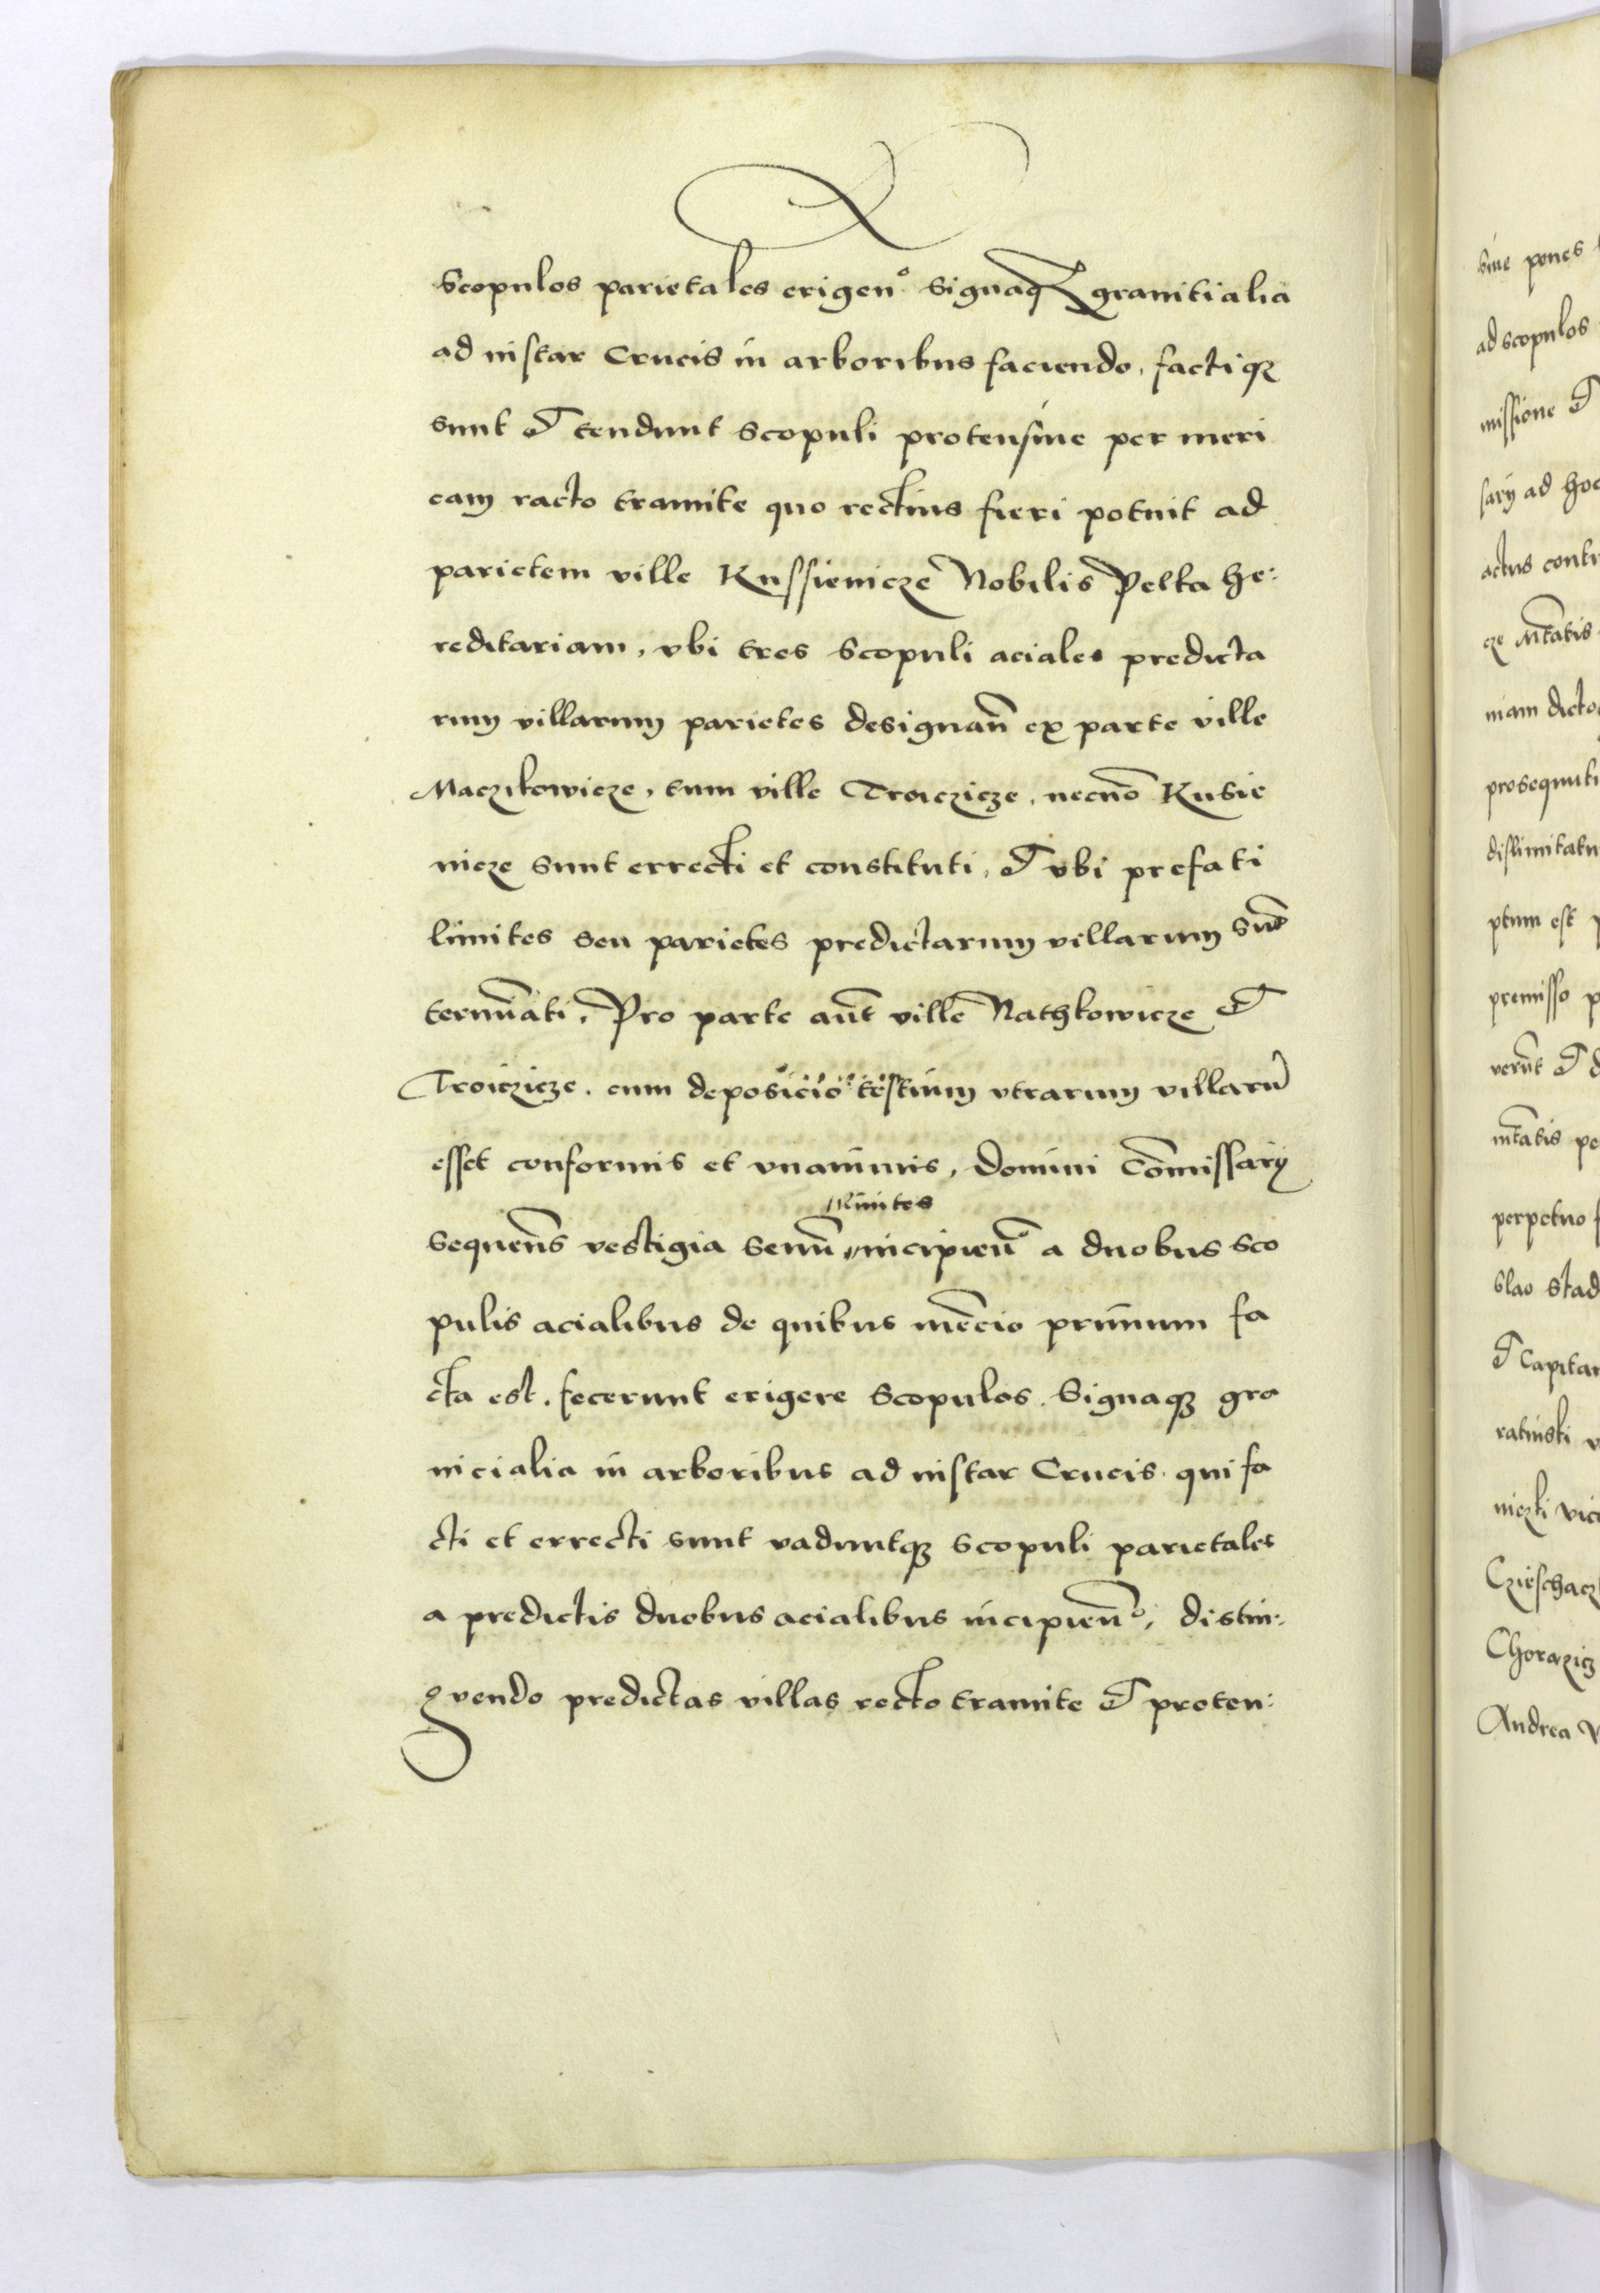 Scopulos parietales erigen̄ Signaqꝫ granitialia
ad instar Crucis in arboribus faciendo, factiqꝫ
sunt et tendunt Scopuli protensiue per meri
cam racto tramite quo rectius fieri potuit ad
parietem ville Kussienicze Nobilis Pelka he:
reditariam, vbi tres Scopuli aciales predicta
rum villarum parietes designan̄ ex parte ville
Maczkowicze, tum ville Troiczicze, necnō Kusie
nicze sunt errecti et constituti, et vbi prefati
limites seu parietes predictarum villarum sūt
termīati, Pro parte aūt ville Nathkowicze et
Troiczicze. cum deposicio testium vtrarum villarū
esset conformis et vnanimis, domini Cōmissarij
limites
Sequens vestigia Senū incipien̄ a duobus sco
pulis acialibus de quibus mēcio primum fa
cta est. fecerunt erigere Scopulos. Signaqꝫ gra
nicialia in arboribus ad instar Crucis. qui fa
cti et errecti sunt vaduntqꝫ scopuli parietales
a predictis duobus acialibus incipien̄, distin:
gvendo predictas villas recto tramite et proten:
siue penes
ad scopulos
missione et
sarij ad hoc
actus
cze
niam
prosequuti
ptum est
premisso
verūt et
perpetuo
slao Stad
et Capitan
ratinski
Chorazicz
Andrea